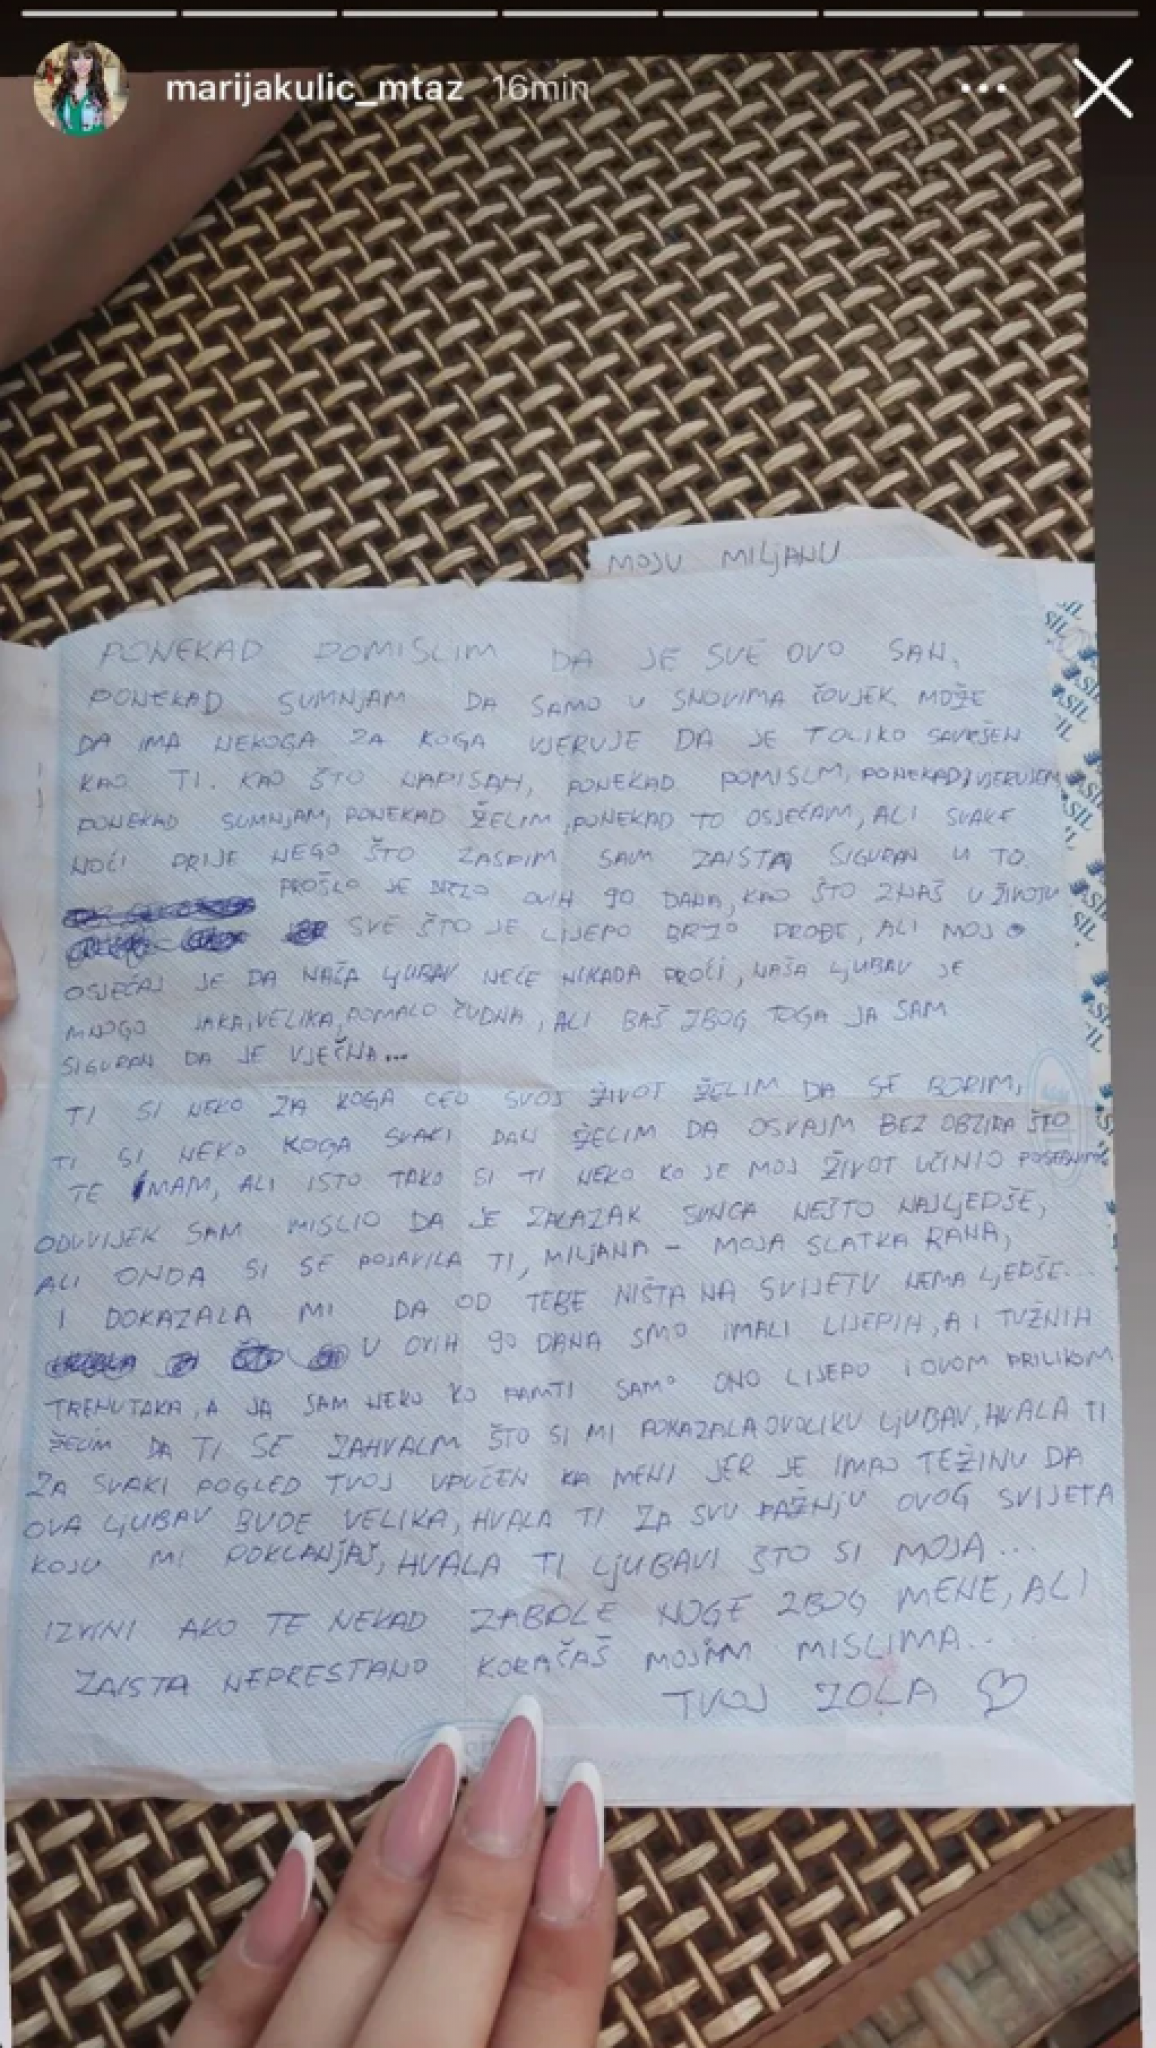 marijakulic_mtaz 16min
MOJU MILJANU
PONEKAD POMISLIM DA JE SVE OVO SAN,
PONEKAD SUMNJAM DA SAMO U SNOVIMA ČOVJEK MOŽE
DA IMA NEKOGA ZA KOGA VJERUJE DA JE TOLIKO SAVRŠEN
KAO TI. KAO ŠTO NAPISAH, PONEKAD POMISLM, PONEKAD VJERUJEM
PONEKAD SUMNJAM, PONEKAD ŽELIM, PONEKAD TO OSJEĆAM, ALI SVAKE
NOĆI PRIJE NEGO ŠTO ZASPIM SAM ZAISTA SIGURAN U TO
PROŠLO JE BRZO OVIH 90 DANA, KAO ŠTO ZNAŠ U ŽIVOTU
SVE ŠTO JE LIJEPO BRZO PROĐE, ALI MOJ
OSJEĆAJ JE DA NAŠA LJUBAV NEĆE NIKADA PROĆI, NAŠA LJUBAV JE
MNOGO JAKA, VELIKA, POMALO ČUDNA, ALI BAŠ ZBOG TOGA JA SAM
SIGURAN DA JE VJEČNA...
TI SI NEKO ZA KOGA CEO SVOJ ŽIVOT ŽELIM DA SE BORIM,
TI SI NEKO KOGA SVAKI DAN ŽELIM DA OSVAJM BEZ OBZIRA ŠTO
TE IMAM, ALI ISTO TAKO SI TI NEKO KO JE MOJ ŽIVOT UČINIO
ODUVIJEK SAM MISLIO DA JE ZALAZAK SUNCA NEŠTO NAJLJEPŠE,
ALI ONDA SI SE POJAVILA TI, MILJANA - MOJA SLATKA RANA,
I DOKAZALA MI DA OD TEBE NIŠTA NA SVIJETU NEMA LJEPŠE...
U OVIH 90 DANA SMO IMALI LIJEPIH, A I TUŽNIH
TRENUTAKA, A JA SAM NEKO KO PAMTI SAMO ONO LIJEPO I OVOM PRILIKOM
ŽELIM DA TI SE ZAHVALM ŠTO SI MI POKAZALA OVOLIKU LJUBAV, HVALA TI
ZA SVAKI POGLED TVOJ UPUĆEN KA MENI JER JE IMAO TEŽINU DA
OVA LJUBAV BUDE VELIKA, HVALA TI ZA SVU PAŽNJU OVOG SVIJETA
KOJU MI POKLANJAŠ, HVALA TI LJUBAVI ŠTO SI MOJA...
IZVINI AKO TE NEKAD ZABOLE NOGE ZBOG MENE, ALI
ZAISTA NEPRESTANO KORAČAŠ MOJIM MISLIMA....
TVOJ ZOLA